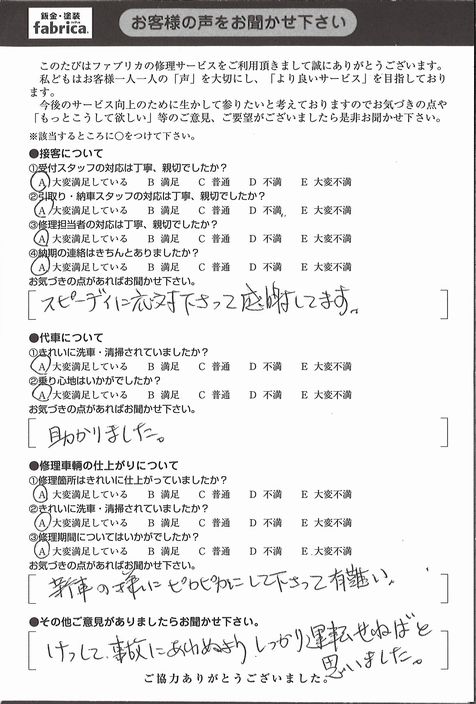 鈑金・塗装
fabrica.
お客様の声をお聞かせ下さい
このたびはファブリカの修理サービスをご利用頂きまして誠にありがとうございます。
私どもはお客様一人一人の「声」を大切にし、「より良いサービス」を目指しており
ます。
今後のサービス向上のために生かして参りたいと考えておりますのでお気づきの点や
「もっとこうして欲しい」等のご意見、ご要望がございましたら是非お聞かせ下さい。
※該当するところに○をつけて下さい。
●接客について
①受付スタッフの対応は丁寧、親切でしたか?
A 大変満足している B 満足 C 普通 D 不満 E 大変不満
②引取り・納車スタッフの対応は丁寧、親切でしたか?
A 大変満足している B 満足 C 普通 D 不満 E 大変不満
③修理担当者の対応は丁寧、親切でしたか?
A 大変満足している B 満足 C 普通 D 不満 E 大変不満
④納期の連絡はきちんとありましたか?
A 大変満足している B 満足 C 普通 D 不満 E 大変不満
お気づきの点があればお聞かせ下さい。
スピーディに応対下さって感謝してます。
●代車について
①きれいに洗車・清掃されていましたか?
A 大変満足している B 満足 C 普通 D 不満 E 大変不満
②乗り心地はいかがでしたか?
A 大変満足している B 満足 C 普通 D 不満 E 大変不満
お気づきの点があればお聞かせ下さい。
助かりました。
●修理車輌の仕上がりについて
①修理箇所はきれいに仕上がっていましたか?
A 大変満足している B 満足 C 普通 D 不満 E 大変不満
②きれいに洗車・清掃されていましたか?
A 大変満足している B 満足 C 普通 D 不満 E 大変不満
③修理期間についてはいかがでしたか?
A 大変満足している B 満足 C 普通 D 不満 E 大変不満
お気づきの点があればお聞かせ下さい。
新車の様にピカピカにして下さって有難い。
●その他ご意見がありましたらお聞かせ下さい。
けっして、事故にあわぬよう、しっかり運転せねばと
思いました。
ご協力ありがとうございました。